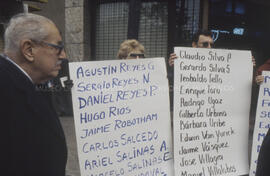 AGUSTÍN REYES G
SERGIO REYES N.
DANIEL REYES P.
HUGO RIOS
JAIME ROBOTHAM
CARLOS SALCEDO
ARIEL SALINAS A.
MARCELO SALINAS E
Claudio Silva P.
Gerardo Silva S
Teobaldo Tello
Enrique Toro
Rodrigo Ugaz
Gilberto Urbina
Bárbara Uribe
Edwin Van Yurick
Jaime Vásquez
José Villagra
Manuel Villalobos